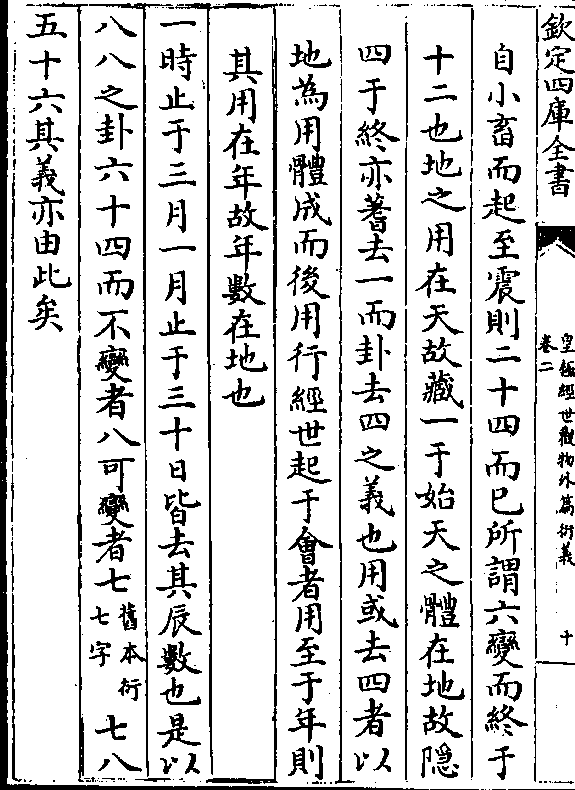 欽定四庫全書
皇極經世觀物外篇衍義
卷二
十
自小畜而起至震則二十四而已所謂六變而終于
十二也地之用在天故藏一于始天之體在地故隱
四于終亦蓍去一而卦去四之義也用或去四者以
地為用體成而後用行經世起于會者用至于年則
其用在年故年數在地也
一時止于三月一月止于三十日皆去其辰數也是以
八八之卦六十四而不變者八可變者七舊本衍七字七八
五十六其義亦由此矣